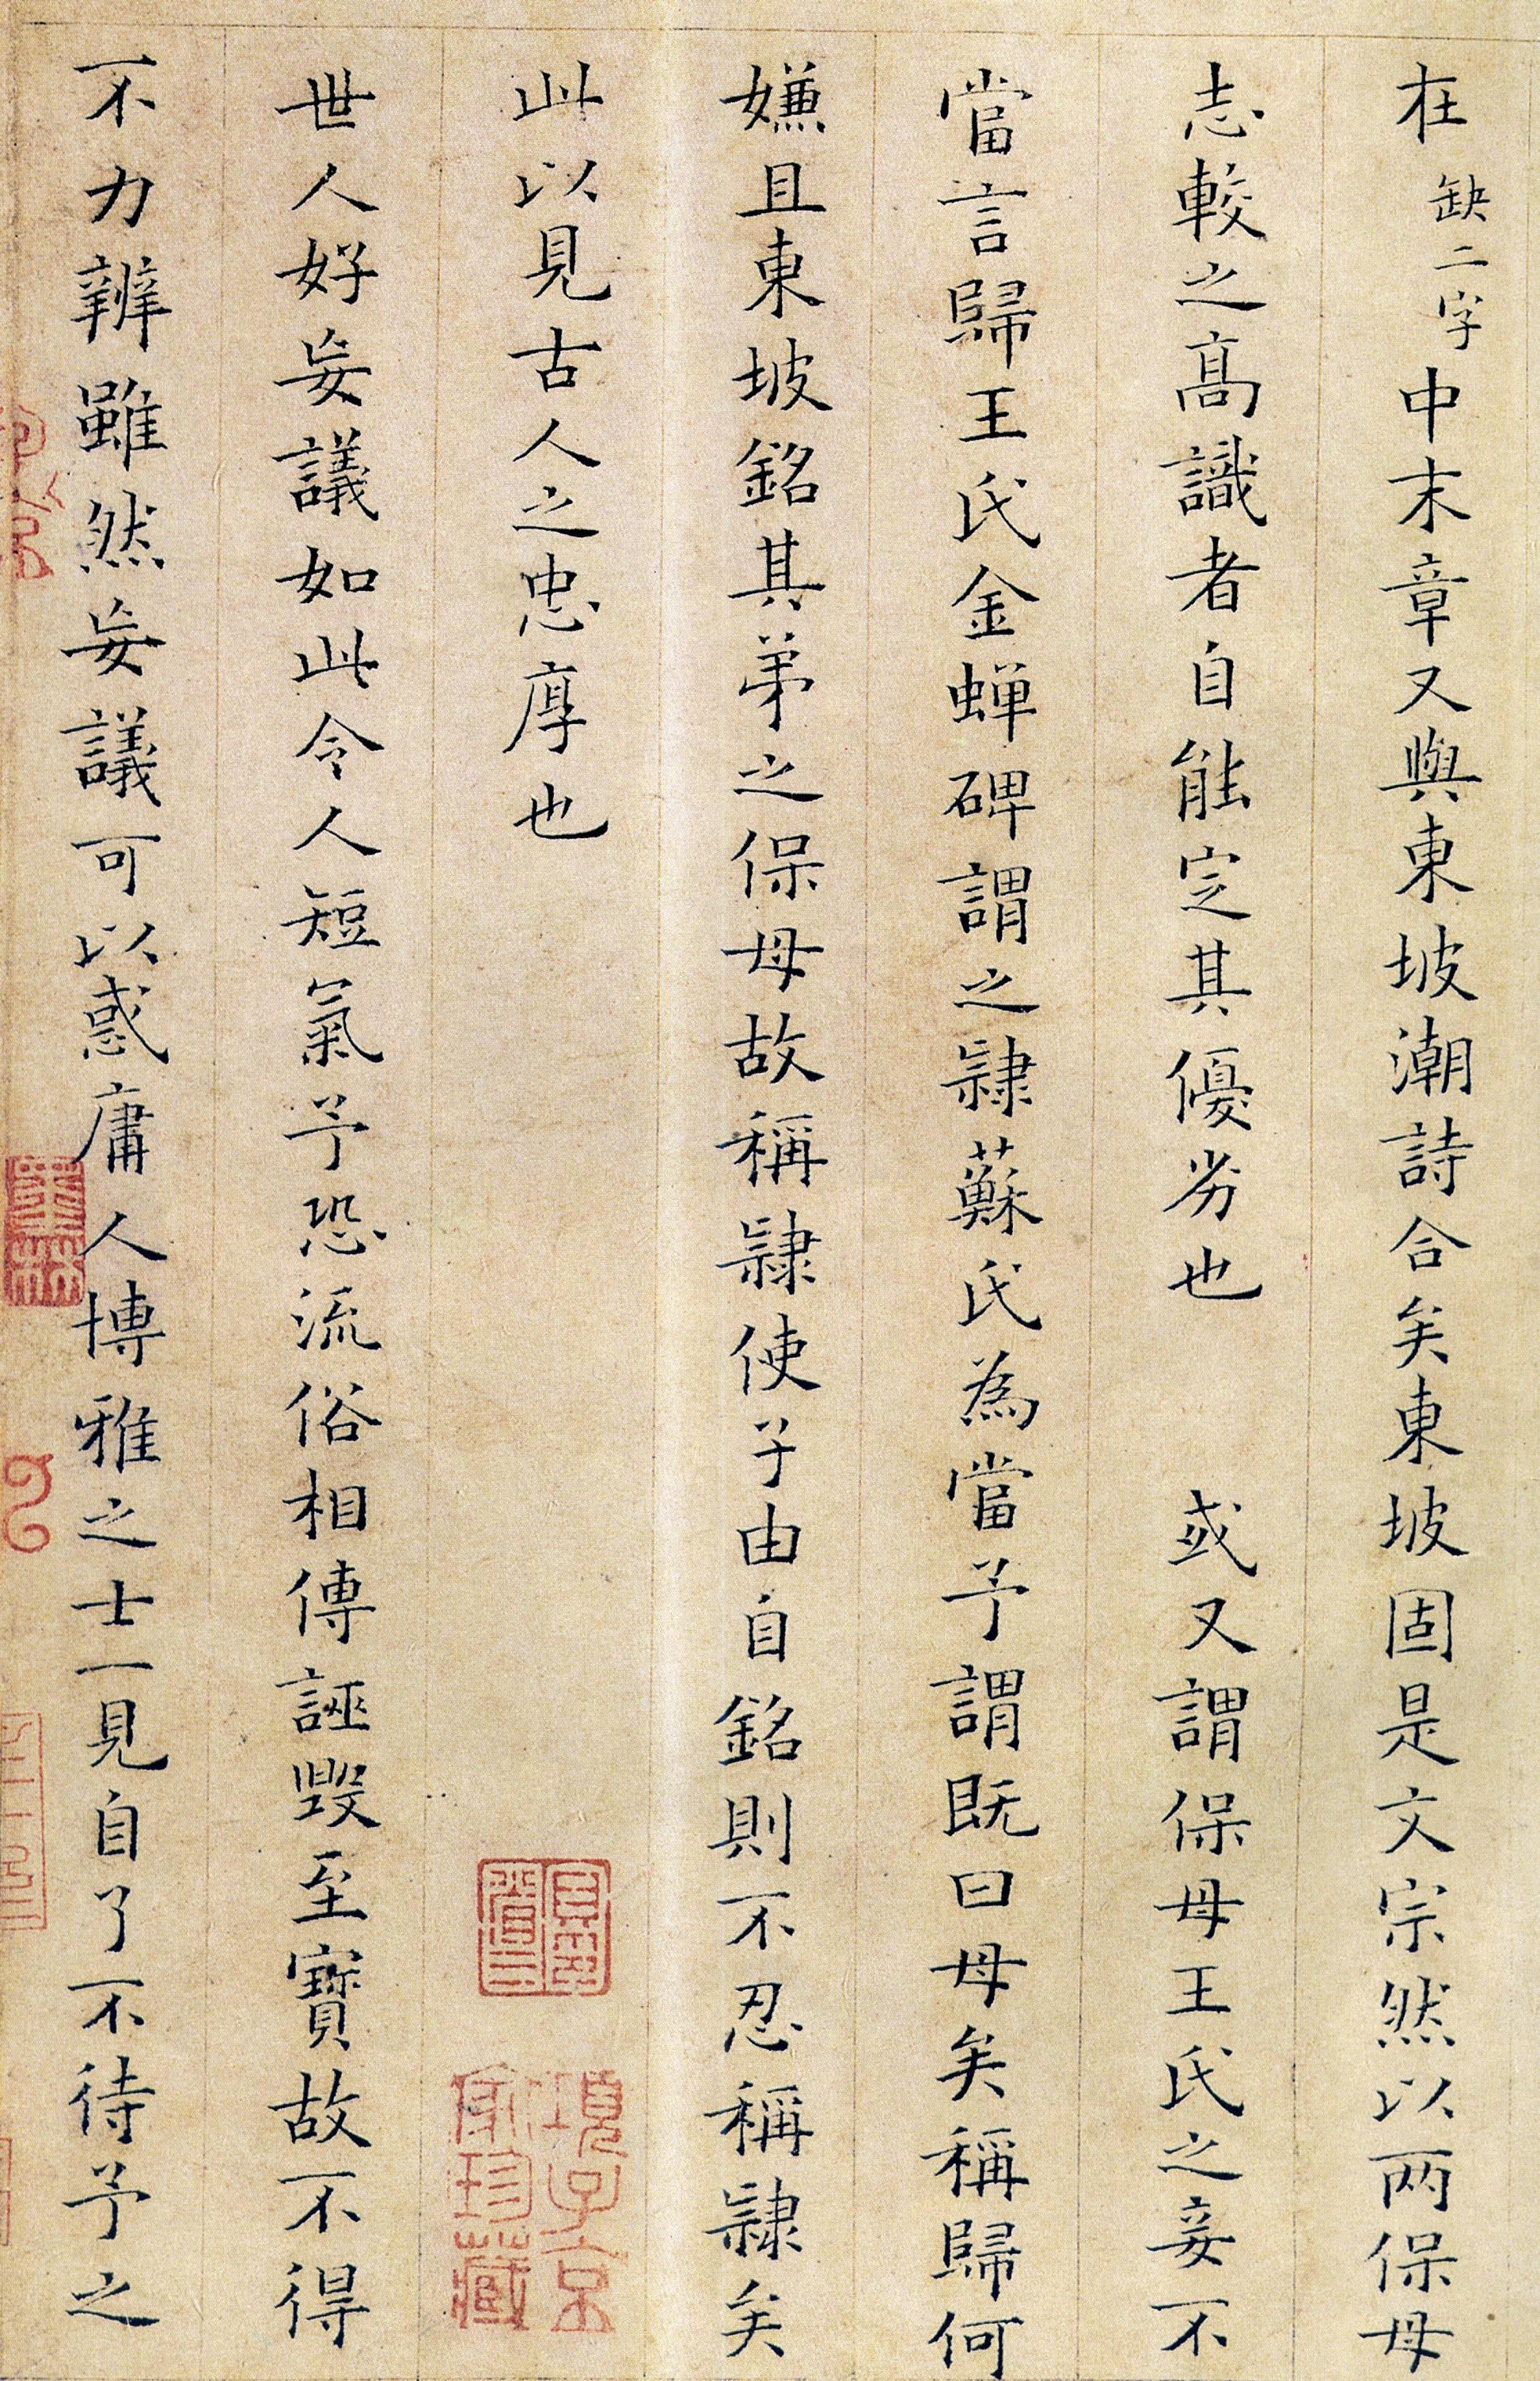 在缺二字中末章又與東坡潮詩合矣東坡固是文宗然以两保母
志較之高識者自能定其優劣也 或又謂保母王氏之妾不
當言歸王氏金蟬碑謂之隷蘇氏為當予謂既曰母矣稱歸何
嫌且東坡銘其弟之保母故稱隷使子由自銘則不忍稱隷矣
此以見古人之忠厚也
世人好妄議如此令人短氣予恐流俗相傳誣毀至寶故不得
不力辨雖然妄議可以惑庸人博雅之士一見自了不待予之
項子京
家珍藏